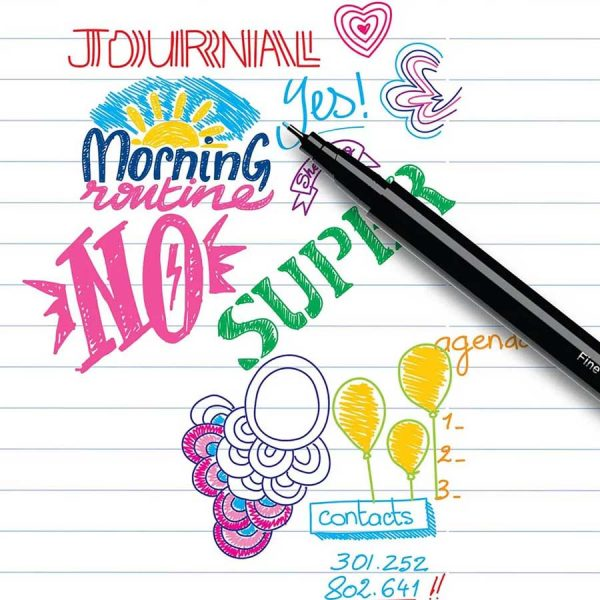 JOURNAL
Yes!
MorninG
routine
She
NO
SUPER
Fine
agenda
1-
2-
3-
contacts
301.252
802.641 !!